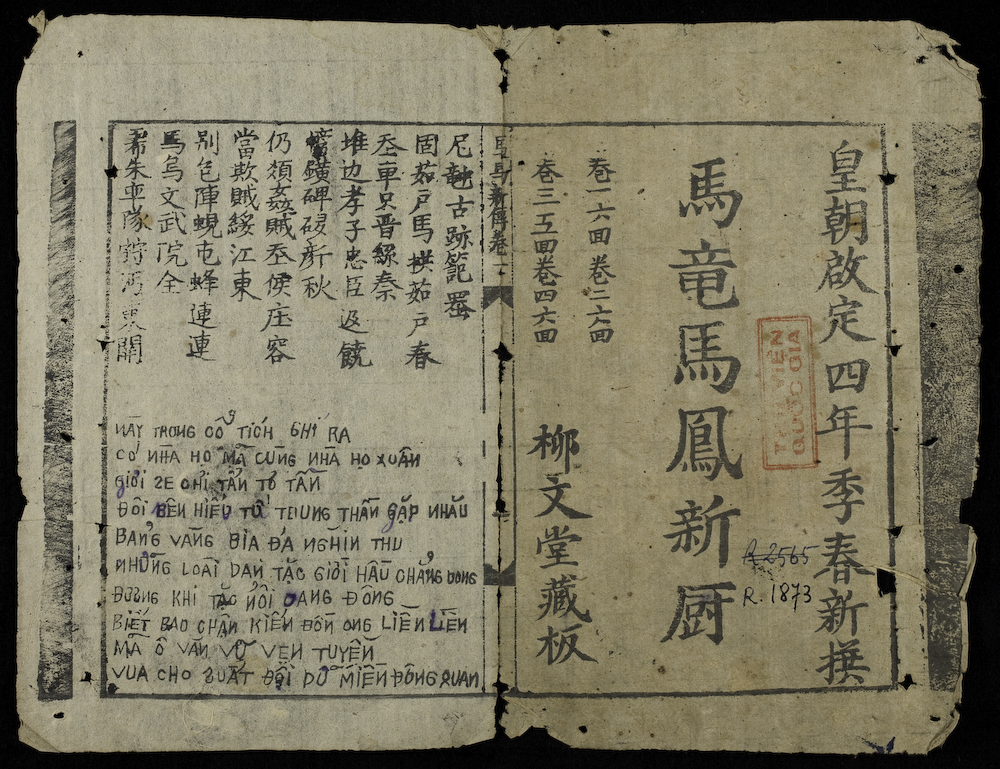 皇朝啟定四年季春新撰
THƯ VIỆN
QUỐC GIA
R 2565
R. 1873
馬竜馬鳳新厨
卷一六回 卷二六回
卷三五回卷四六回
柳文堂藏板
新傳卷一
尼 古跡
固茹戶馬拱茹戶春
車 晋 秦
堆边孝子忠臣返饒
鐄碑 秋
仍類姦賊丕侯庄容
當欺賊綏江東
別包陣蜆屯蜂連連
馬烏文武院全
朱 隊 東關
NÀY TRONG CỔ TÍCH GHI RA
CÓ NHÀ HỌ MÃ CÙNG NHÀ HỌ XUÂN
GIỜI SE CHỈ TẤN TƠ TẦN
ĐÔI BÊN HIẾU TỬ TRUNG THẦN GẶP NHAU
BẢNG VÀNG BIA ĐÁ NGHÌN THU
NHỮNG LOÀI DAN TẶC GIỜI HẦU CHẲNG DONG
ĐƯƠNG KHI TẶC NỔI GIANG ĐÔNG
BIẾT BAO CHẬN KIẾN ĐỒN ONG LIỀN LIỀN
MÃ Ô VĂN VŨ VẸN TUYỀN
VUA CHO SUẤT ĐỘI DỮ MIỀN ĐÔNG QUAN